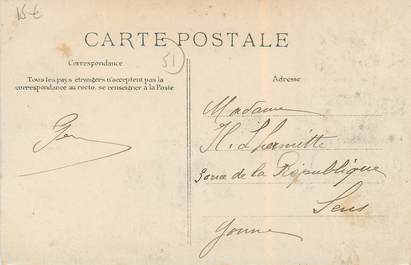 15 €
CARTE POSTALE
51
Correspondance
Tous les pays étrangers n'acceptent pas la
correspondance au recto. se renseigner à la Poste
Adresse
Madame
H. Lhermitte
de la République
Sens
Yonne